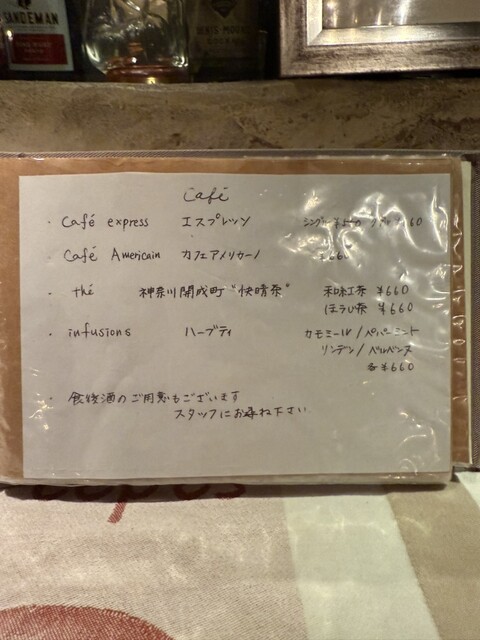 SANDEMAN
Café
・ Café express エスプレッソ シングル ¥550 ダブル 660
・ Café Americain カフェアメリカーノ ¥660
・ thé 神奈川開成町 "快晴茶" 和紅茶 ¥660
ほうじ茶 ¥660
・ infusions ハーブティ カモミール / ペパーミント
リンデン / ベルベンヌ
各 ¥660
・ 食後酒のご用意もございます
スタッフにお尋ね下さい